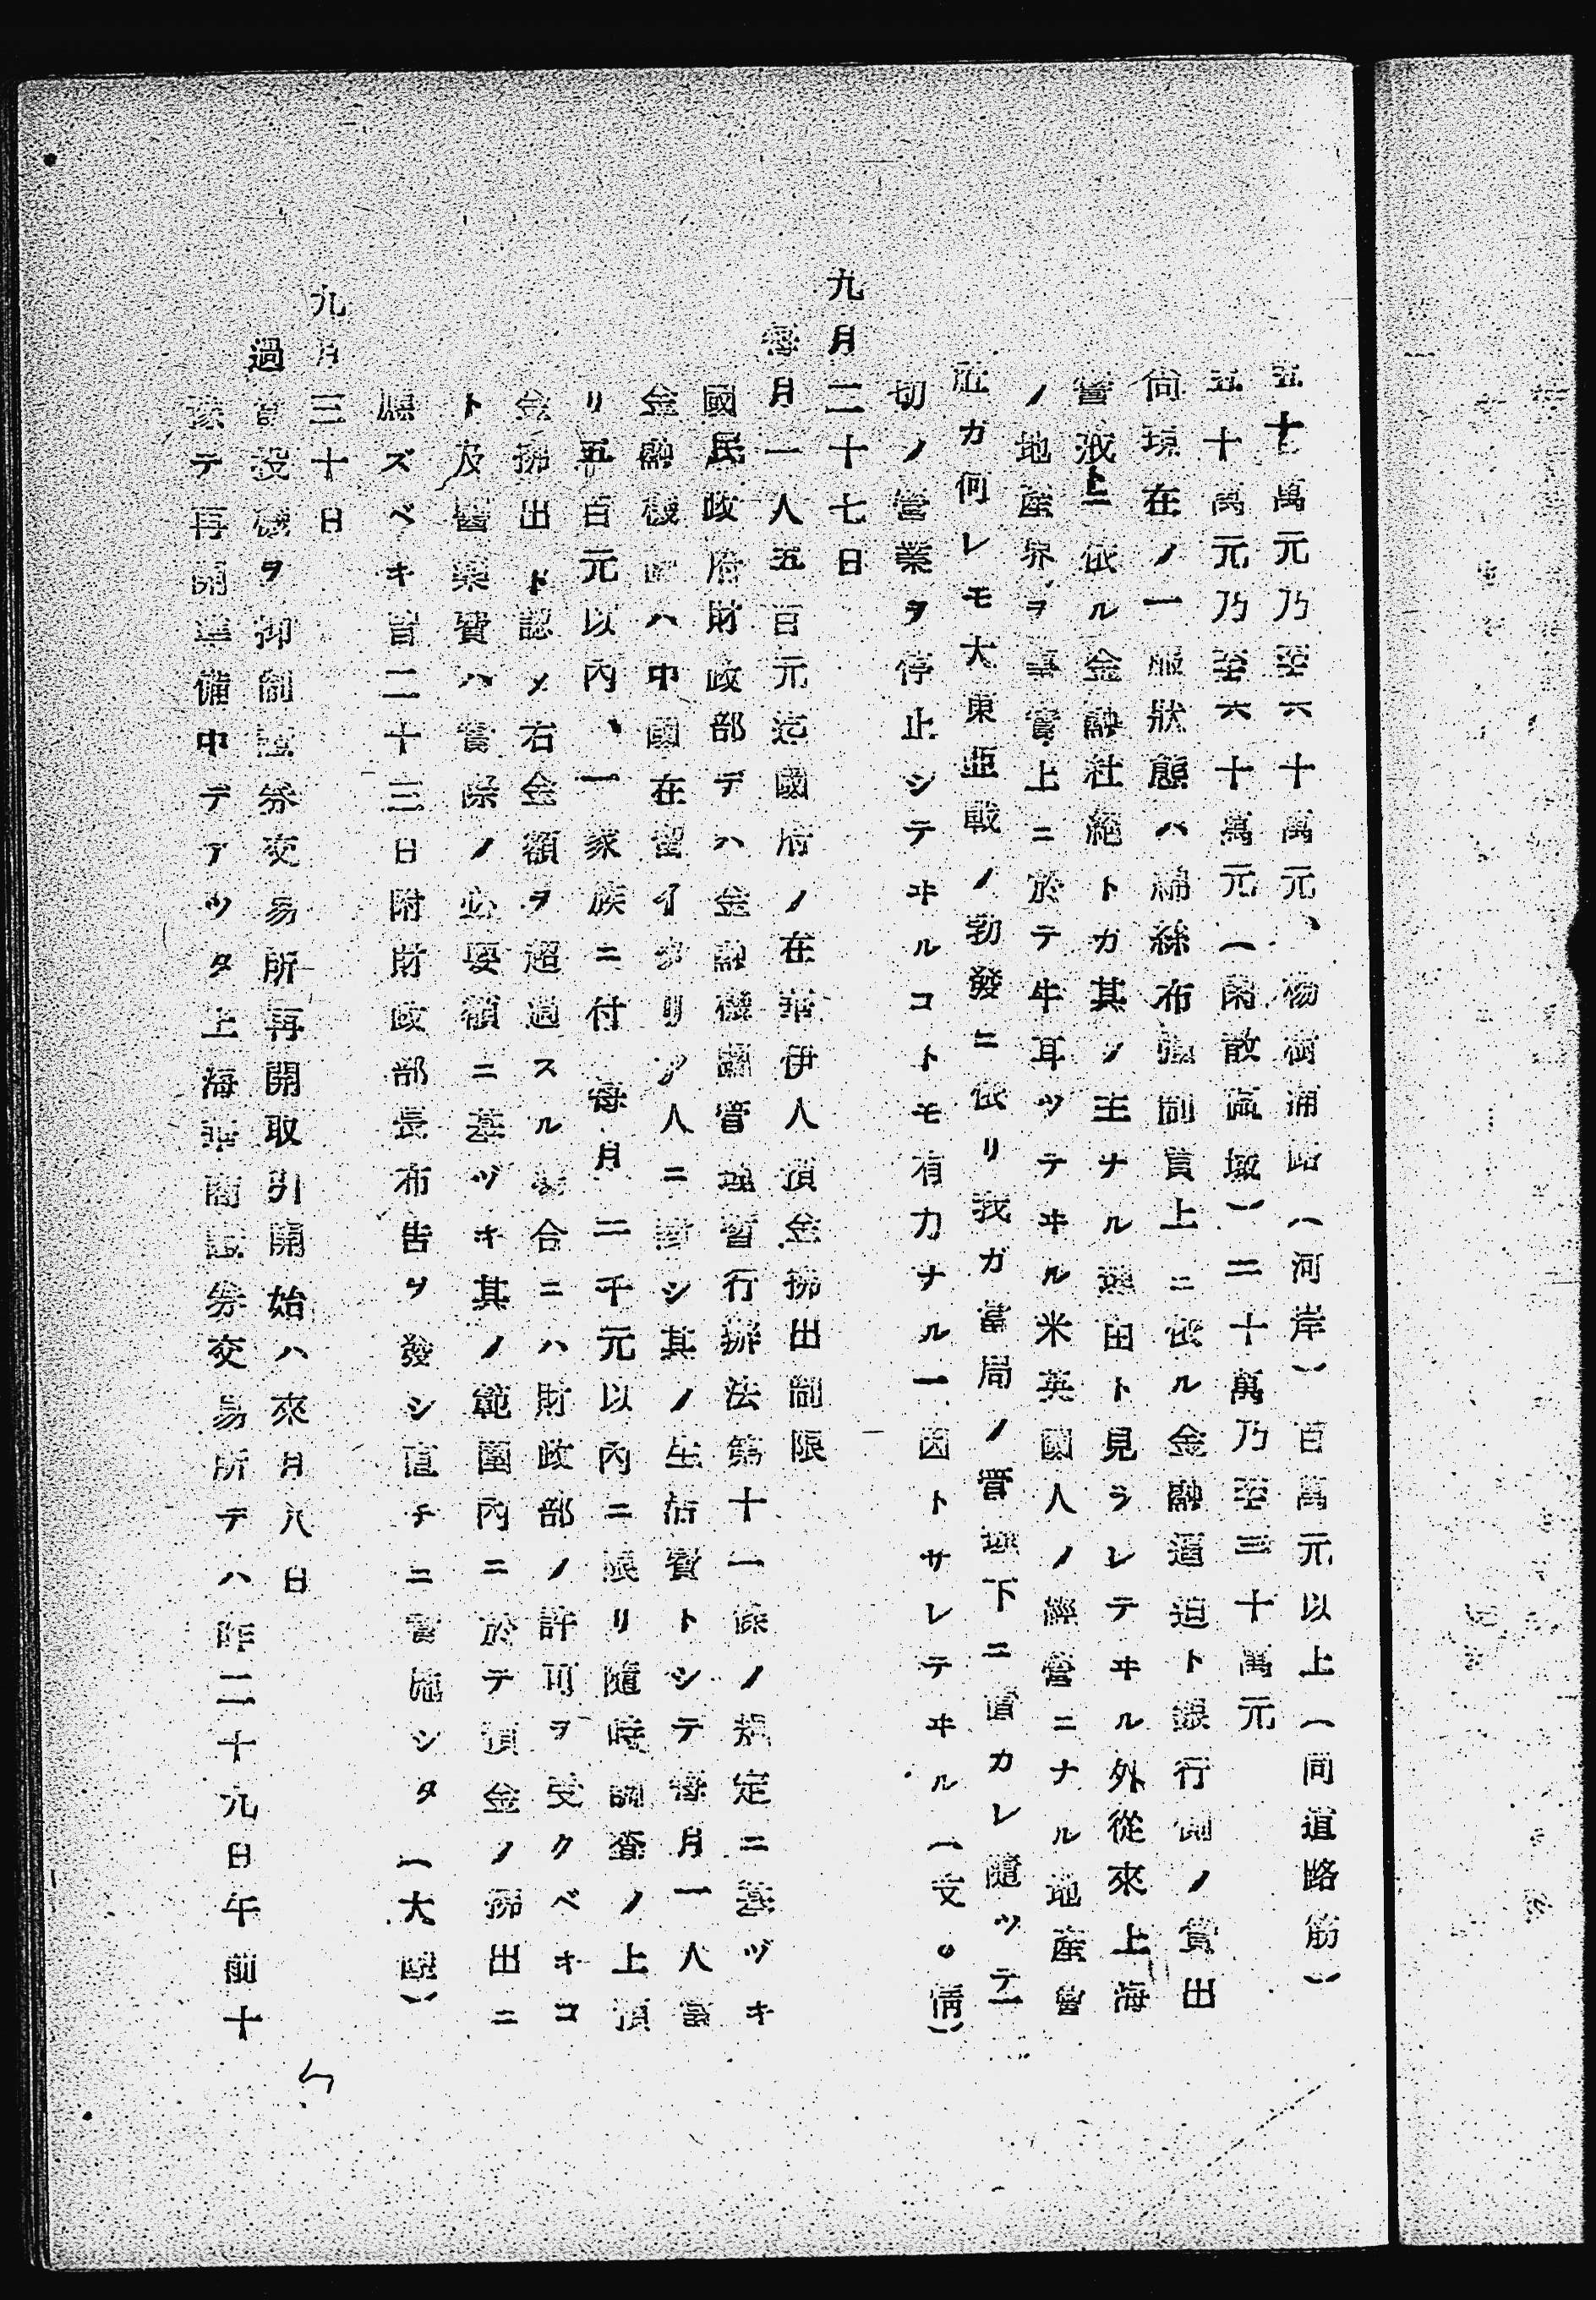 五十萬元乃至六十萬元、楊樹浦路(河岸)百萬元以上(同道路筋)
五十萬元乃至六十萬元(閑散區域)二十萬乃至三十萬元
尙現在ノ一服狀態ハ綿絲布強制買上ニ依ル金融逼迫ト銀行側ノ貸出
警戒トニ依ル金融杜絕トガ其ノ主ナル理由ト見ラレテヰル外從來上海
ノ地產界ヲ事實上ニ於テ牛耳ツテヰル米英國人ノ經營ニナル地產會
社ガ何レモ大東亞戰ノ勃發ニ依リ我ガ當局ノ管理下ニ置カレ隨ツテ一
切ノ營業ヲ停止シテヰルコトモ有力ナル一因トサレテヰル(文。情)
九月二十七日
每月一人五百元迄國府ノ在華伊人預金拂出制限
國民政府財政部デハ金融機關管理暫行辦法第十一條ノ規定ニ基ヅキ
金融機關ハ中國在留イタリア人ニ對シ其ノ生活費トシテ每月一人當
リ五百元以內、一家族ニ付每月二千元以內ニ限リ隨時調查ノ上預
金拂出ヲ認メ右金額ヲ超過スル場合ニハ財政部ノ許可ヲ受クベキコ
ト及醫藥費ハ實際ノ必要額ニ基ヅキ其ノ範圍內ニ於テ預金ノ拂出ニ
應ズベキ旨二十三日附財政部長布告ヲ發シ直チニ實施シタ(大陸)
九月三十日
過當投機ヲ抑制證券交易所再開取引開始ハ來月八日
豫テ再開準備中デアツタ上海華商證券交易所デハ昨二十九日午前十